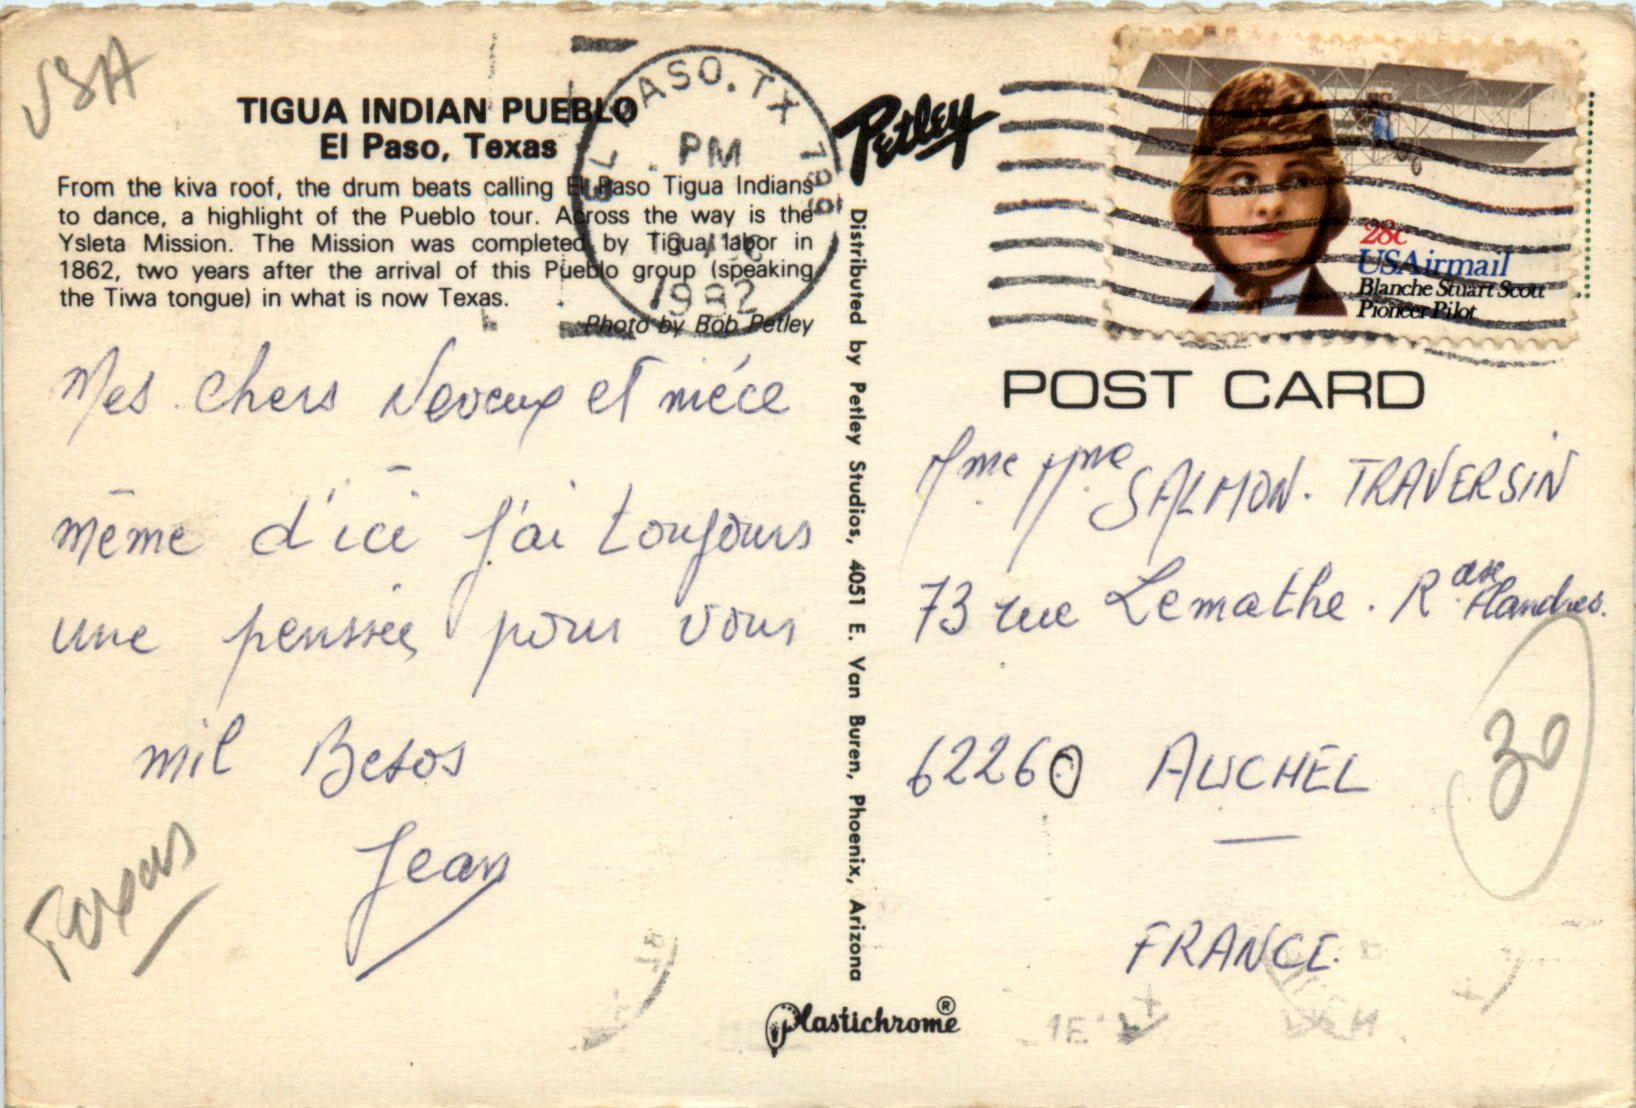 USA
TIGUA INDIAN PUEBLO
El Paso, Texas
From the kiva roof, the drum beats calling El Paso Tigua Indians
to dance, a highlight of the Pueblo tour. Across the way is the
Ysleta Mission. The Mission was completed by Tigua labor in
1862, two years after the arrival of this Pueblo group (speaking
the Tiwa tongue) in what is now Texas.
Photo by Bob Petley
EL PASO, TX 799
PM
1982
Petley
28c
USAirmail
Blanche Stuart Scott
Pioneer Pilot
Mes chers Neveux et nièce
même d'ici j'ai toujours
une pensée pour vous
mil Besos
Jean
Texas
Distributed by Petley Studios, 4051 E. Van Buren, Phoenix, Arizona
Plastichrome®
POST CARD
SALMON. TRAVERSIN
73 rue Lemathe. Rce Flandres.
62260 AUCHEL
FRANCE.
30